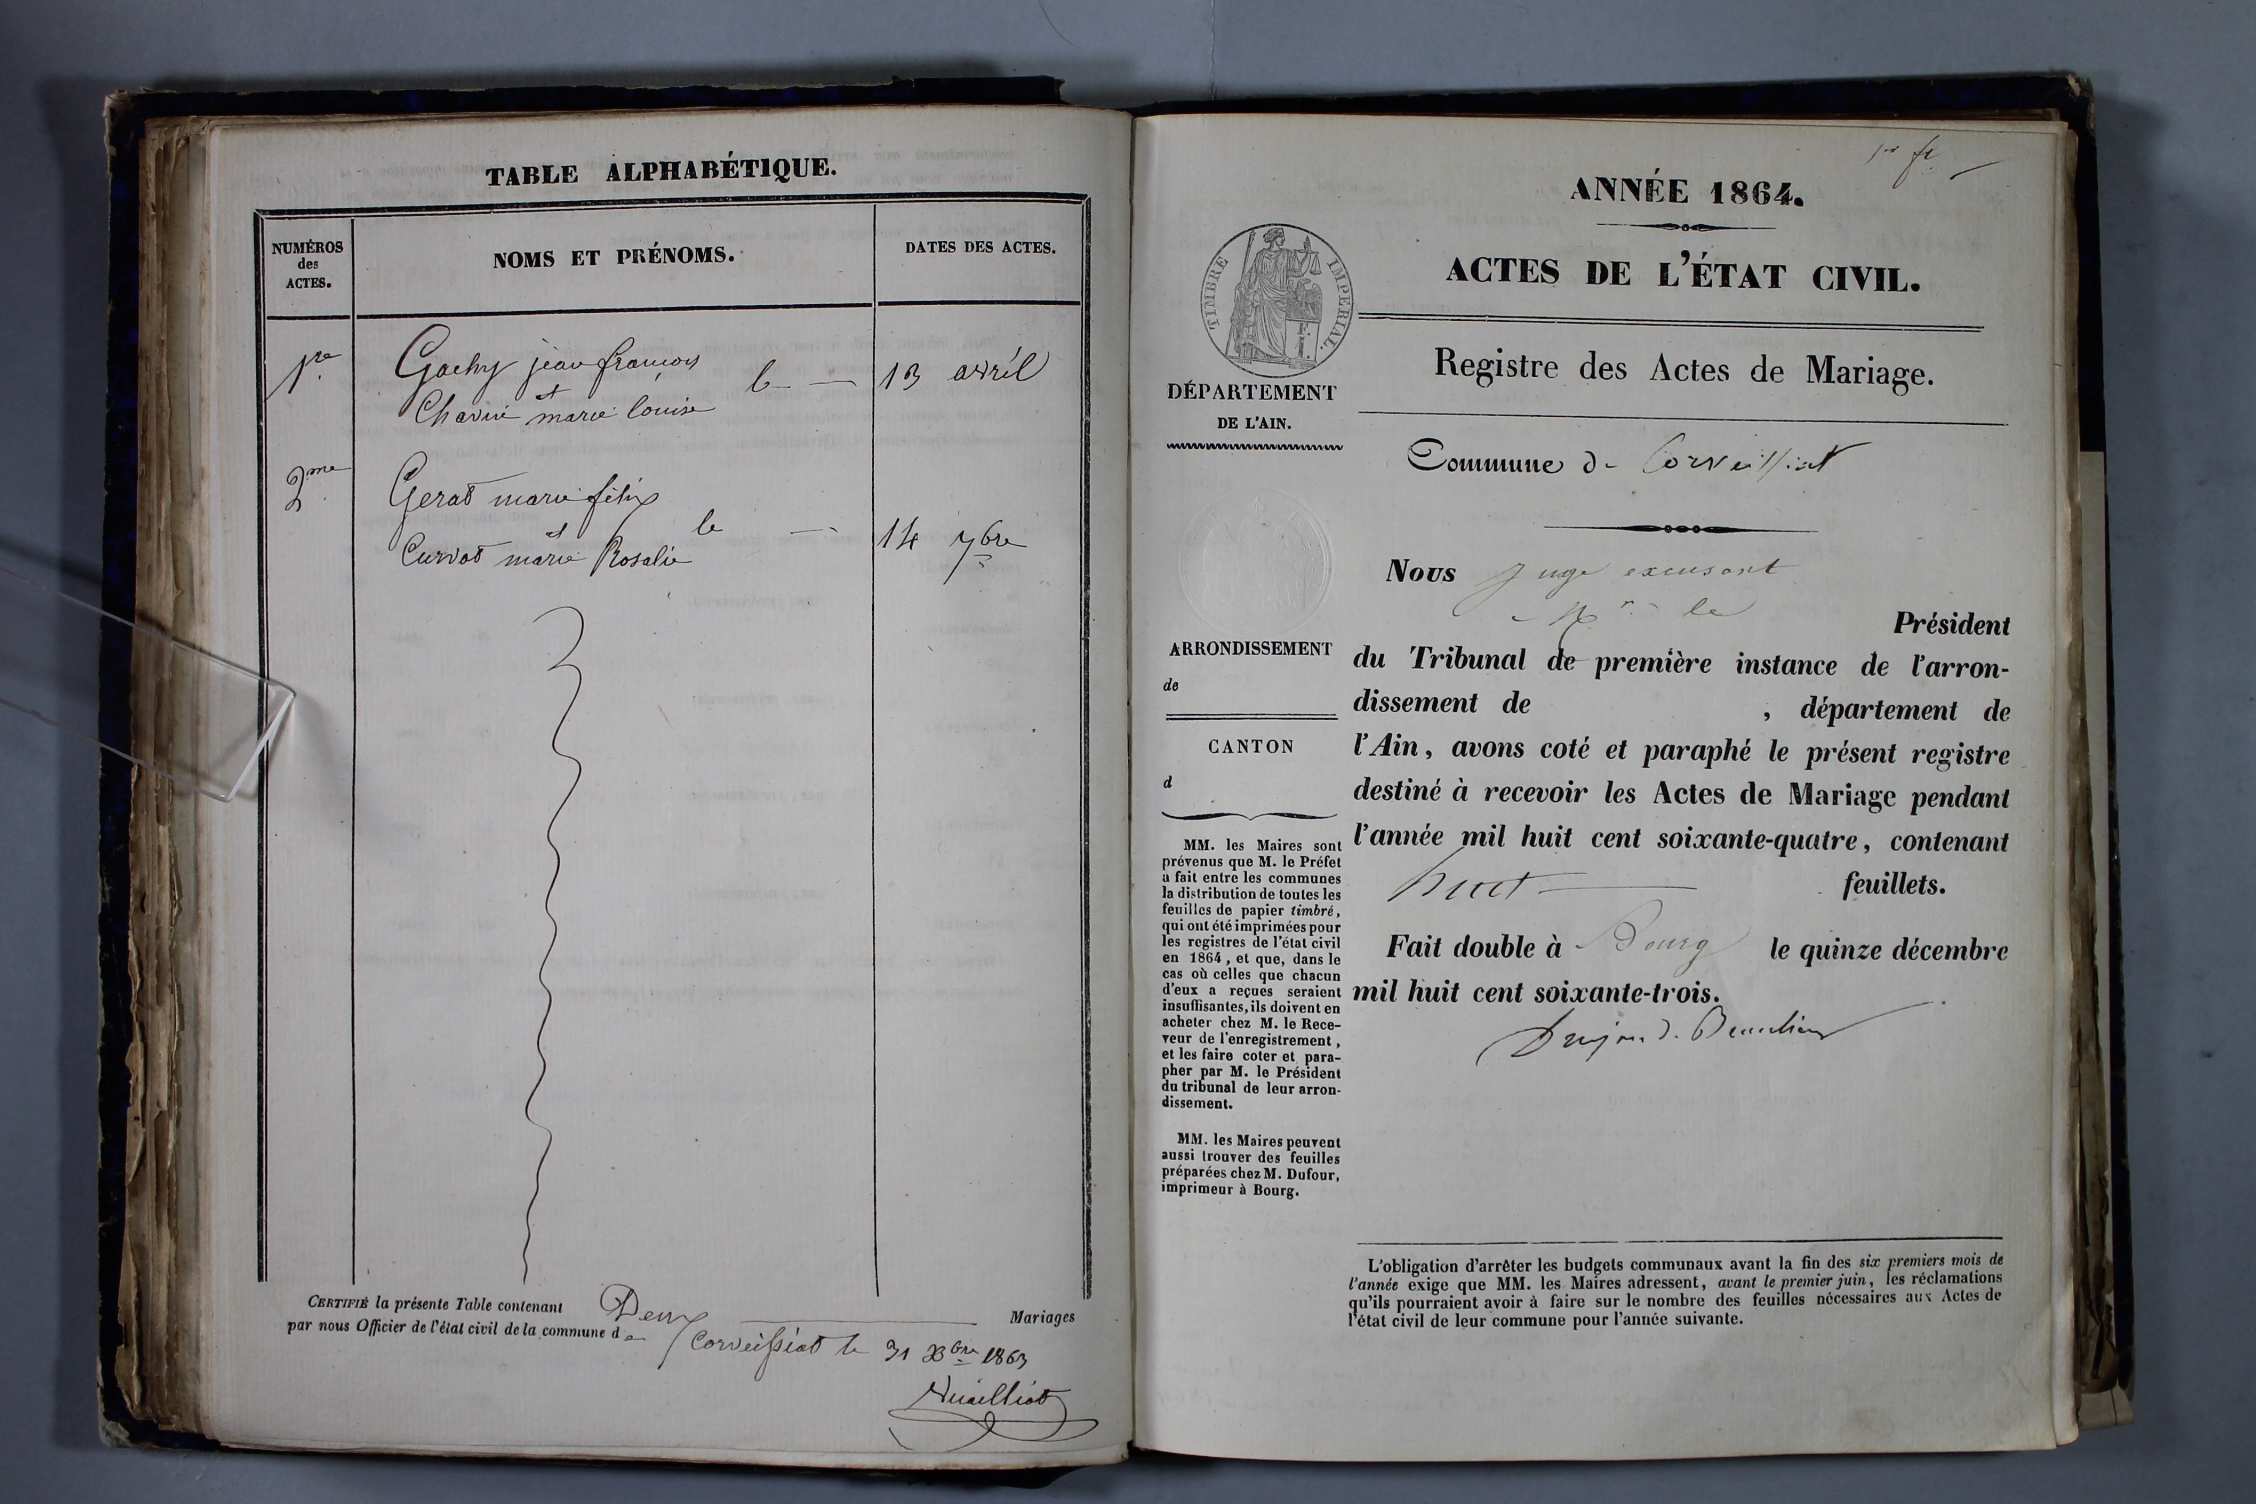 TABLE ALPHABÉTIQUE.
NUMÉROS
des
ACTES.
NOMS ET PRÉNOMS.
DATES DES ACTES.
1re
Gachy jean françois
et
le
13 avril
Chavin marie louise
2me
Gerat marie félix
et
le
14 7bre
Curvat marie Rosalie
CERTIFIÉ la présente Table contenant Deux Mariages
par nous Officier de l'état civil de la commune de Corveissiat le 31 Xbre 1863
ANNÉE 1864.
ACTES DE L'ÉTAT CIVIL.
TIMBRE IMPÉRIAL.
Registre des Actes de Mariage.
DÉPARTEMENT
DE L'AIN.
Commune de Corveissiat
ARRONDISSEMENT
de
CANTON
d
MM. les Maires sont
prévenus que M. le Préfet
a fait entre les communes
la distribution de toutes les
feuilles de papier timbré,
qui ont été imprimées pour
les registres de l'état civil
en 1864, et que, dans le
cas où celles que chacun
d'eux a reçues seraient
insuffisantes, ils doivent en
acheter chez M. le Rece-
veur de l'enregistrement,
et les faire coter et para-
pher par M. le Président
du tribunal de leur arron-
dissement.
MM. les Maires peuvent
aussi trouver des feuilles
préparées chez M. Dufour,
imprimeur à Bourg.
Nous Juge excusant
Mr le Président
du Tribunal de première instance de l'arron-
dissement de , département de
l'Ain, avons coté et paraphé le présent registre
destiné à recevoir les Actes de Mariage pendant
l'année mil huit cent soixante-quatre, contenant
huit feuillets.
Fait double à Bourg le quinze décembre
mil huit cent soixante-trois.
L'obligation d'arrêter les budgets communaux avant la fin des six premiers mois de
l'année exige que MM. les Maires adressent, avant le premier juin, les réclamations
qu'ils pourraient avoir à faire sur le nombre des feuilles nécessaires aux Actes de
l'état civil de leur commune pour l'année suivante.